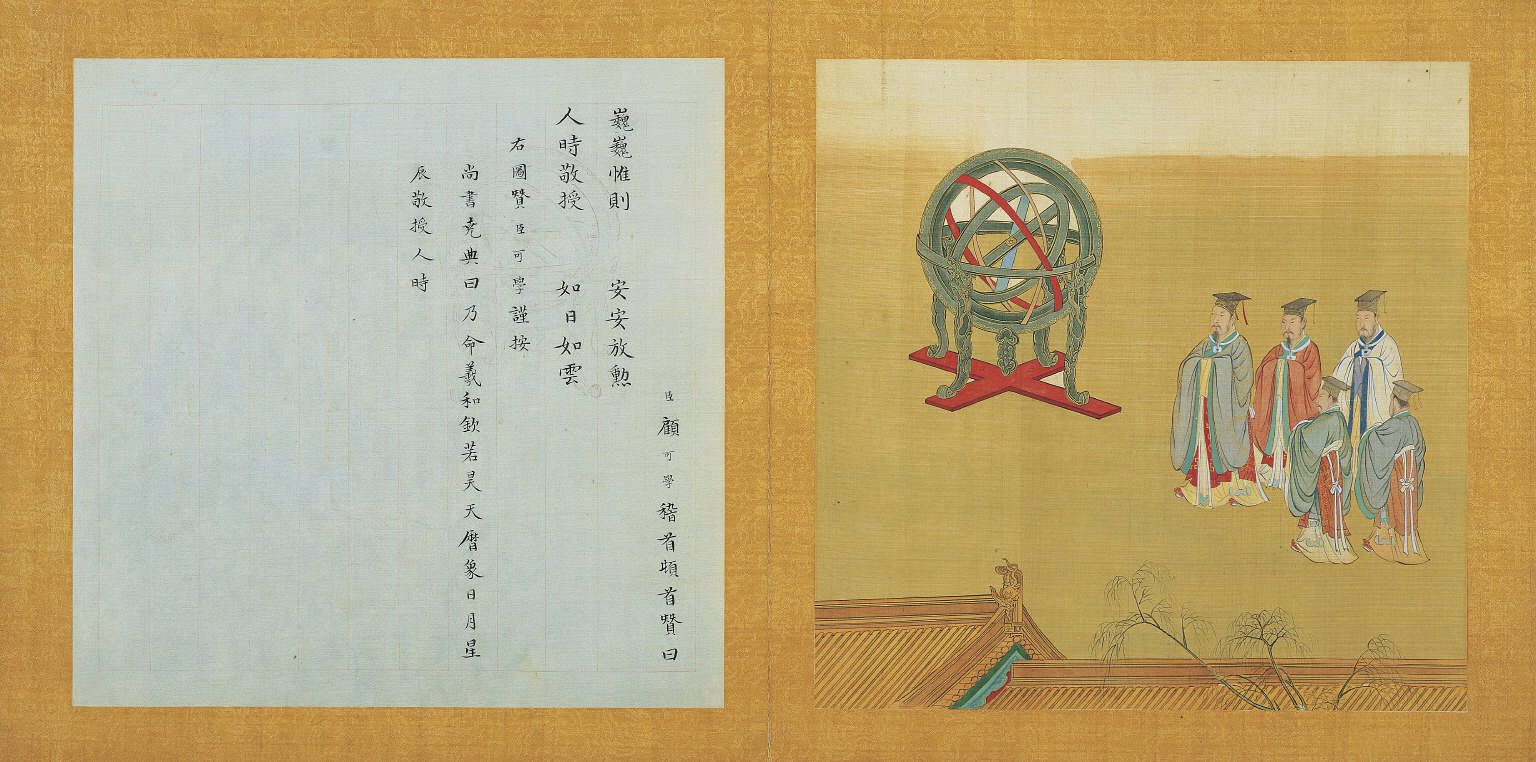 臣顧可學稽首頓首贊曰
巍巍惟則　安安放勲
人時敬授　如日如雲
右圖贊臣可學謹按
尚書堯典曰乃命羲和欽若昊天曆象日月星
辰敬授人時